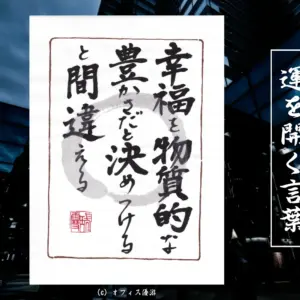 幸福を物質的な
豊かさだと決めつける
と間違える
運を開く言葉
(c) オフィス湯沼